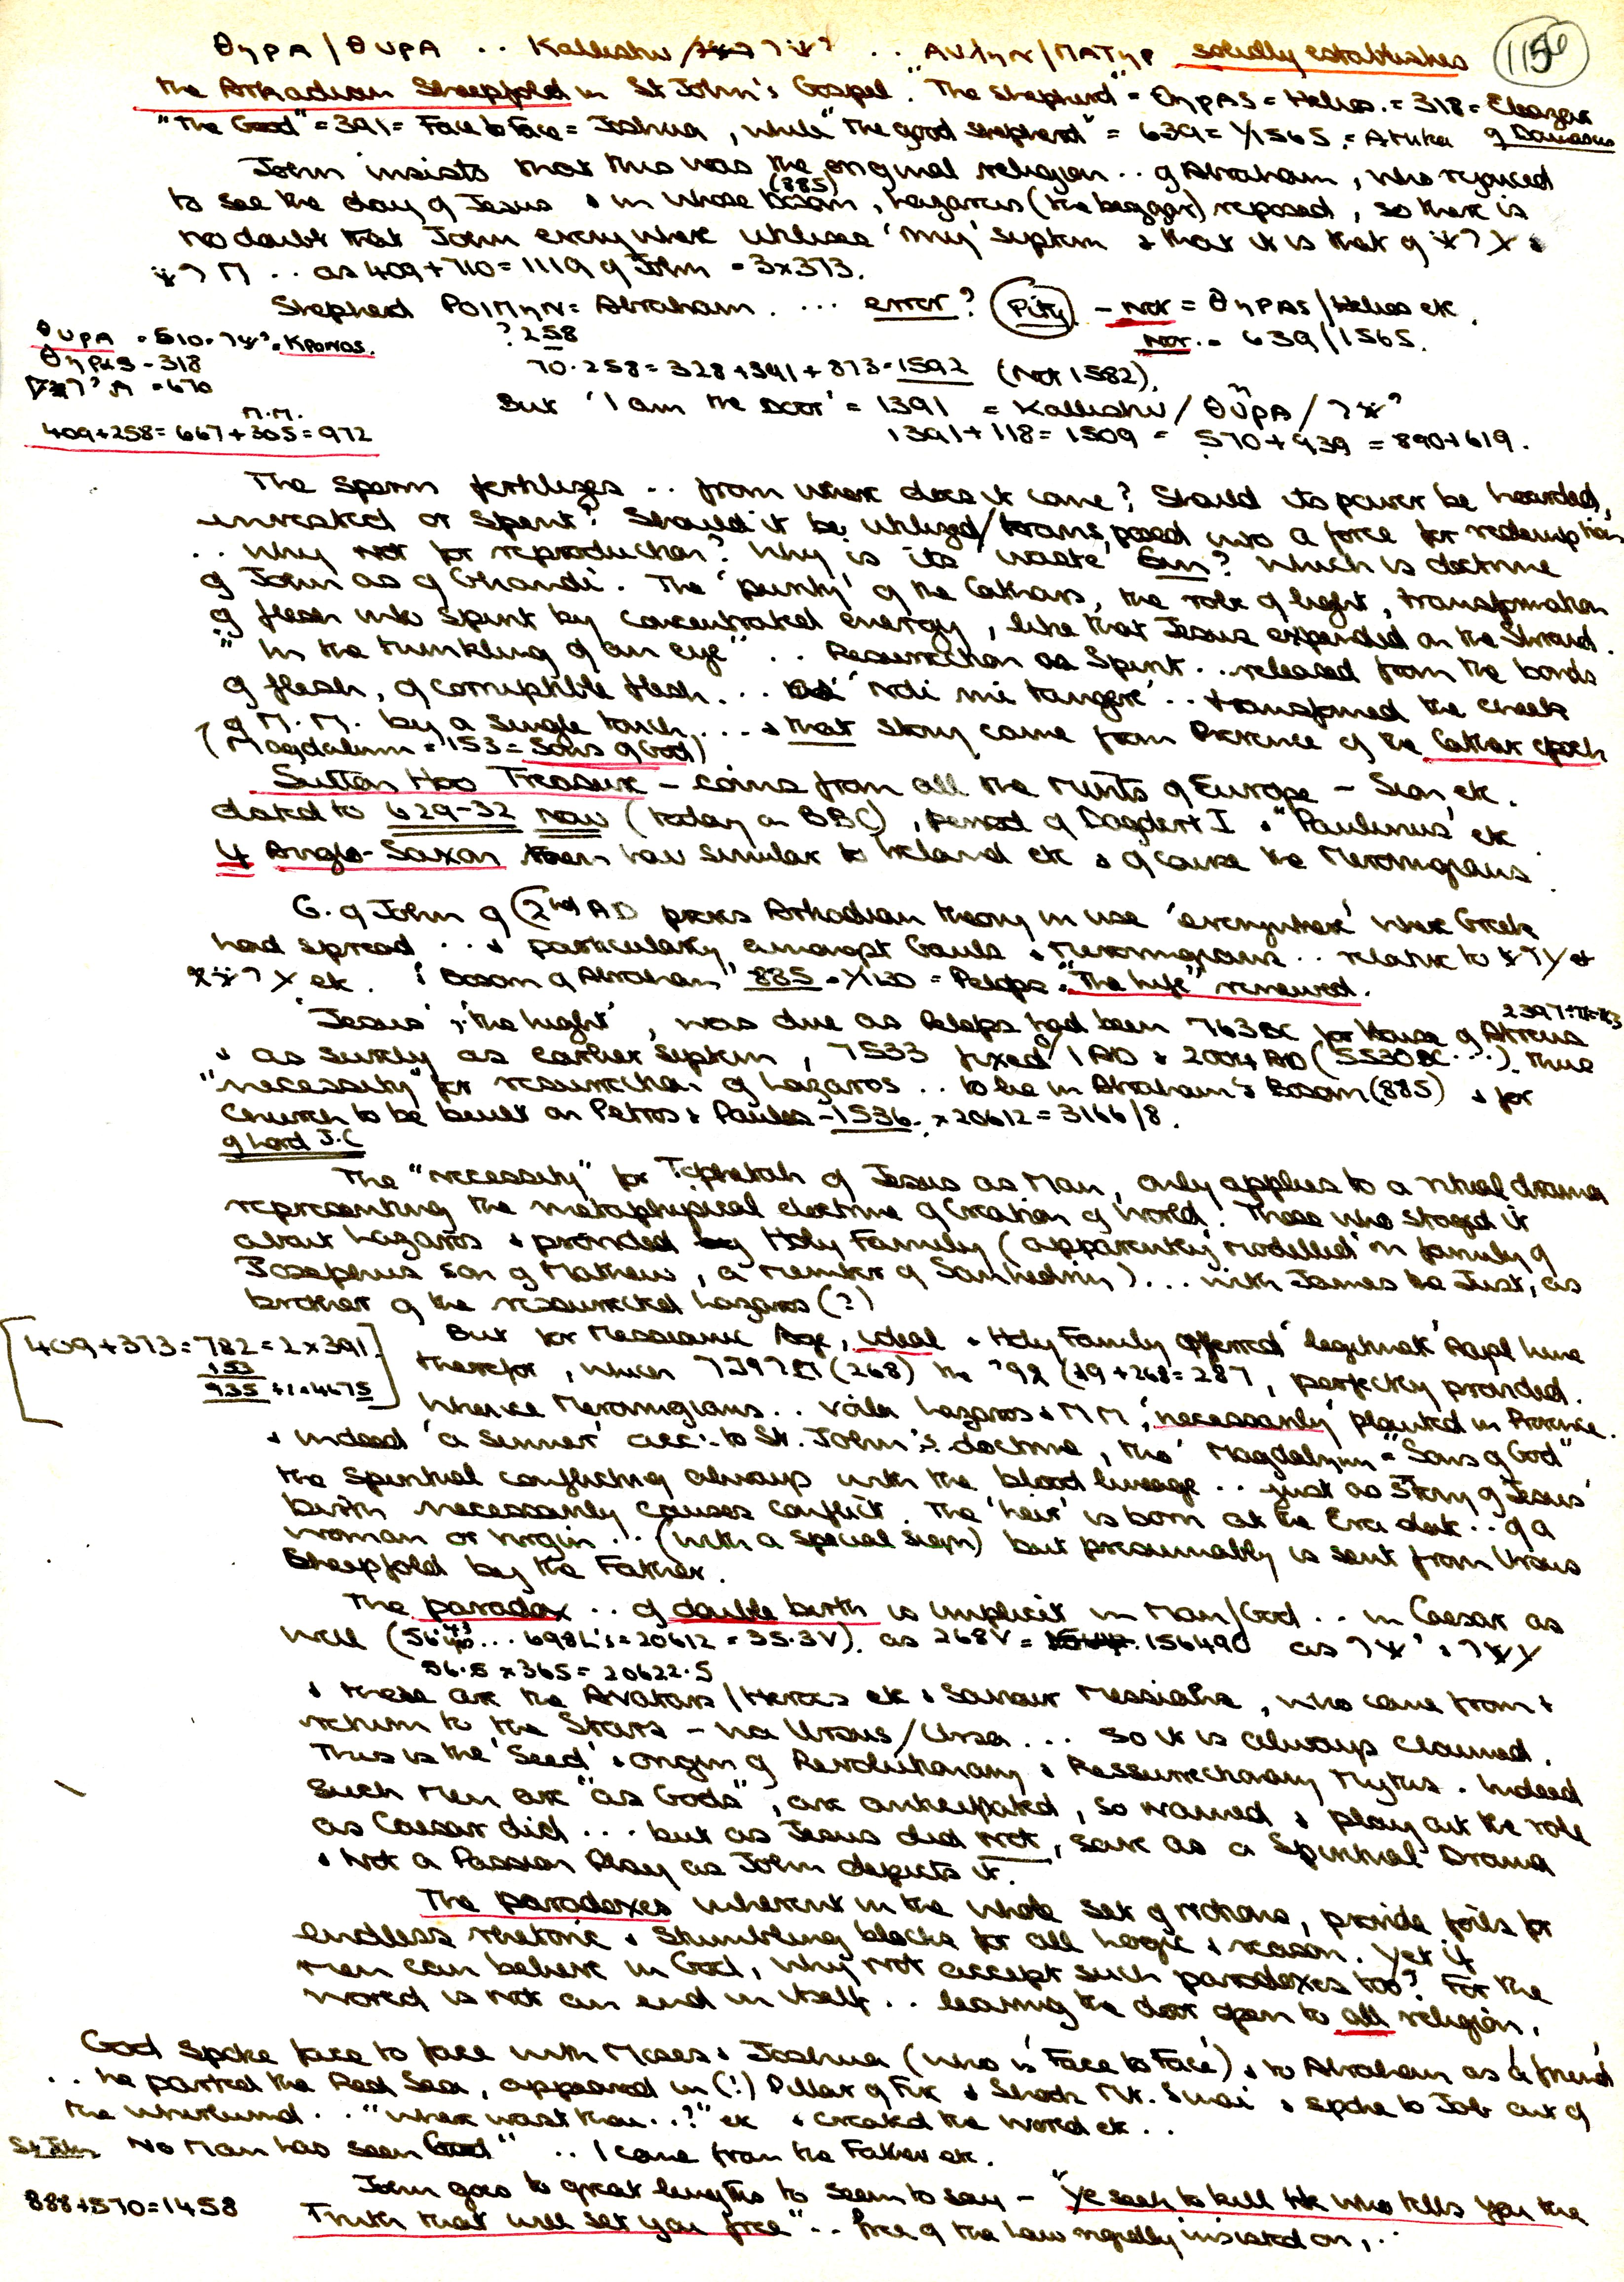 θηρΑ / θυρΑ .. Kallishu / .. Αυληγ / ΠΑΤηρ solidly establishes
1156
the Arkadian Sheepfold in St John's Gospel. "The Shepherd" = θηρΑs = Helios. = 318 = Eleazar
"The Good" = 391 = Face to Face = Joshua, while "The good shepherd" = 639 = 1/1565. = Attika of Damascus
John insists that this was the original religion .. of Abraham, who rejoiced
(885)
to see the day of Jesus & in whose bosom, Lazarus (the beggar) reposed, so there is
no doubt that John everywhere utilises 'my' system & that it is that of
.. as 409+710=1119 of John = 3x373.
Shepherd ΠΟΙΜηΝ = Abraham. ... error? Pity - Not = θηρΑs / Helios etc.
?258
Not. = 639/1565.
θυρΑ = 510. . Kronos.
θηρΑs = 318
= 670
70.258 = 328+391+873=1592 (Not 1582).
But 'I am the Door' = 1391 = Kallishu / θυρΑ /
M.M.
409+258=667+305=972
1391+118=1509 = 570+939 = 890+619.
The Sperm fertilizes .. from where does it come? Should its power be hoarded,
or spent? Should it be utilized/transposed into a force for redemption
.. Why not for reproduction? Why is its waste Sin? Which is doctrine
of John as of Ghandi. The 'purity' of the Cathars, the robe of light, transformation
of flesh into spirit by concentrated energy, like that Jesus expended on the Shroud.
"In the twinkling of an eye" .. Resurrection as Spirit .. released from the bonds
of flesh, of corruptible flesh ... 'Noli mi tangere' .. transformed the cheek
of M.M. by a single touch ... & that story came from Provence of the Cathar epoch
(Magdalum = 153 = Sons of God)
Sutton Hoo Treasure – coins from all the Mints of Europe – Sion, etc.
dated to 629-32 now (today on BBC), period of Dagobert I & "Paulinus" etc.
4 Anglo-Saxon how similar to Ireland etc & of course the Merovingians.
G. of John of (2nd AD proves Arkadian theory in use 'everywhere' where Greek
had spread ... & particularly amongst Gauls & Merovingians .. relative to
etc. 'Bosom of Abraham" 885 = 1/1130 = Pelops. "The Life" renewed.
'Jesus' ; 'the light', was due as Pelops had been 763BC for House of Atreus
& as surely as earlier system, 7533 fixed 1 AD & 2004 AD (5530BC ...). Thus
"necessity" for resurrection of Lazaros .. to lie in Abraham's Bosom (885) & for
Church to be built on Petros & Paulos – 1536. x 20612 = 3166/8.
of Lord J.C
The "necessity" for of Jesus as Man, only applies to a ritual drama
representing the metaphysical doctrine of Creation of World! Those who staged it
about Lazaros & provided Holy Family (apparently 'modelled' on family of
Josephus son of Mathew, a member of Sanhedrin) ... with James the Just, as
brother of the resurrected Lazaros (?)
409+373=782=2x391
153
935 ÷1.4675
But for Messianic Age, ideal & Holy Family offered 'legitimate' Royal Line
therefor, when (268) the (19+268=287, perfectly provided.
Whence Merovingians .. voila Lazaros & MM, 'necessarily' planted in Provence.
& indeed 'a sinner' acc. to St. John's doctrine, tho' Magdalum = "Sons of God"
the Spiritual conflicting always with the blood lineage .. just as Story of Jesus'
birth necessarily causes conflict. The 'heir' is born at the Era date .. of a
woman or virgin ... (with a special sign) but presumably is sent from Ursus
Sheepfold by the Father.
The paradox .. of double birth is implicit in Man/God .. in Caesar as
well (56 ... 698L's=20612 = 35.3V). as 268V = 156490 as
56.5 x 365 = 20622.5
& these are the Avatars / Heroes etc & Saviour Messiahs, who come from &
return to the Stars – via Ursus/Ursa ... So it is always claimed.
This is the 'Seed' & origin of Revolutionary & Ressurectionary Mythos. Indeed
such Men are "as Gods", are anticipated, so named & play out the role
as Caesar did ... but as Jesus did not, save as a Spiritual Drama
& Not a Passion Play as John depicts it.
The paradoxes inherent in the whole set of notions, provide foils for
endless rhetoric & stumbling blocks for all Logic & reason. Yet if
men can believe in God, why not accept such paradoxes too? For the
word is not an end in itself .. leaving the door open to all religion.
God spoke face to face with Moses & Joshua (who is 'Face to Face') & to Abraham as 'a friend'
.. he parted the Red Sea, appeared in (!) Pillar of Fire & Shook Mt. Sinai & spoke to Job out of
the whirlwind .. "where wast thou ..?" etc & created the World etc ..
St John No Man has seen God" .. I come from the Father etc.
John goes to great lengths to seem to say – "Ye seek to kill He who tells you the
888+570=1458
Truth that will set you free" .. free of the Law rigidly insisted on, ..